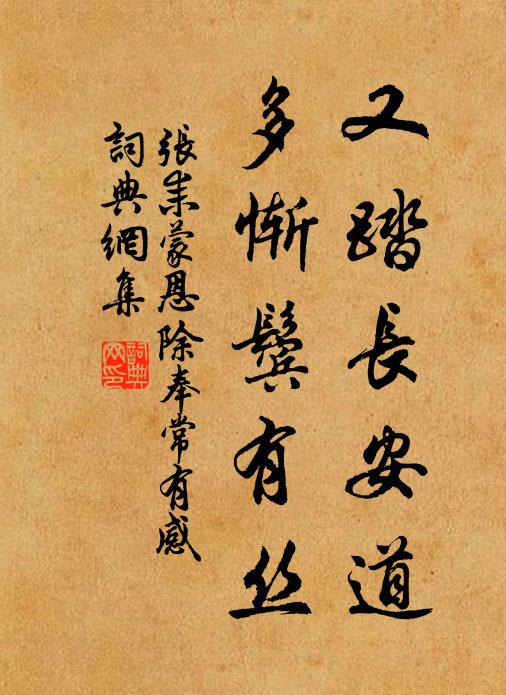 又踏長安道
多慚鬢有丝
張耒蒙恩除奉常有感
詞典網集
詞典網印